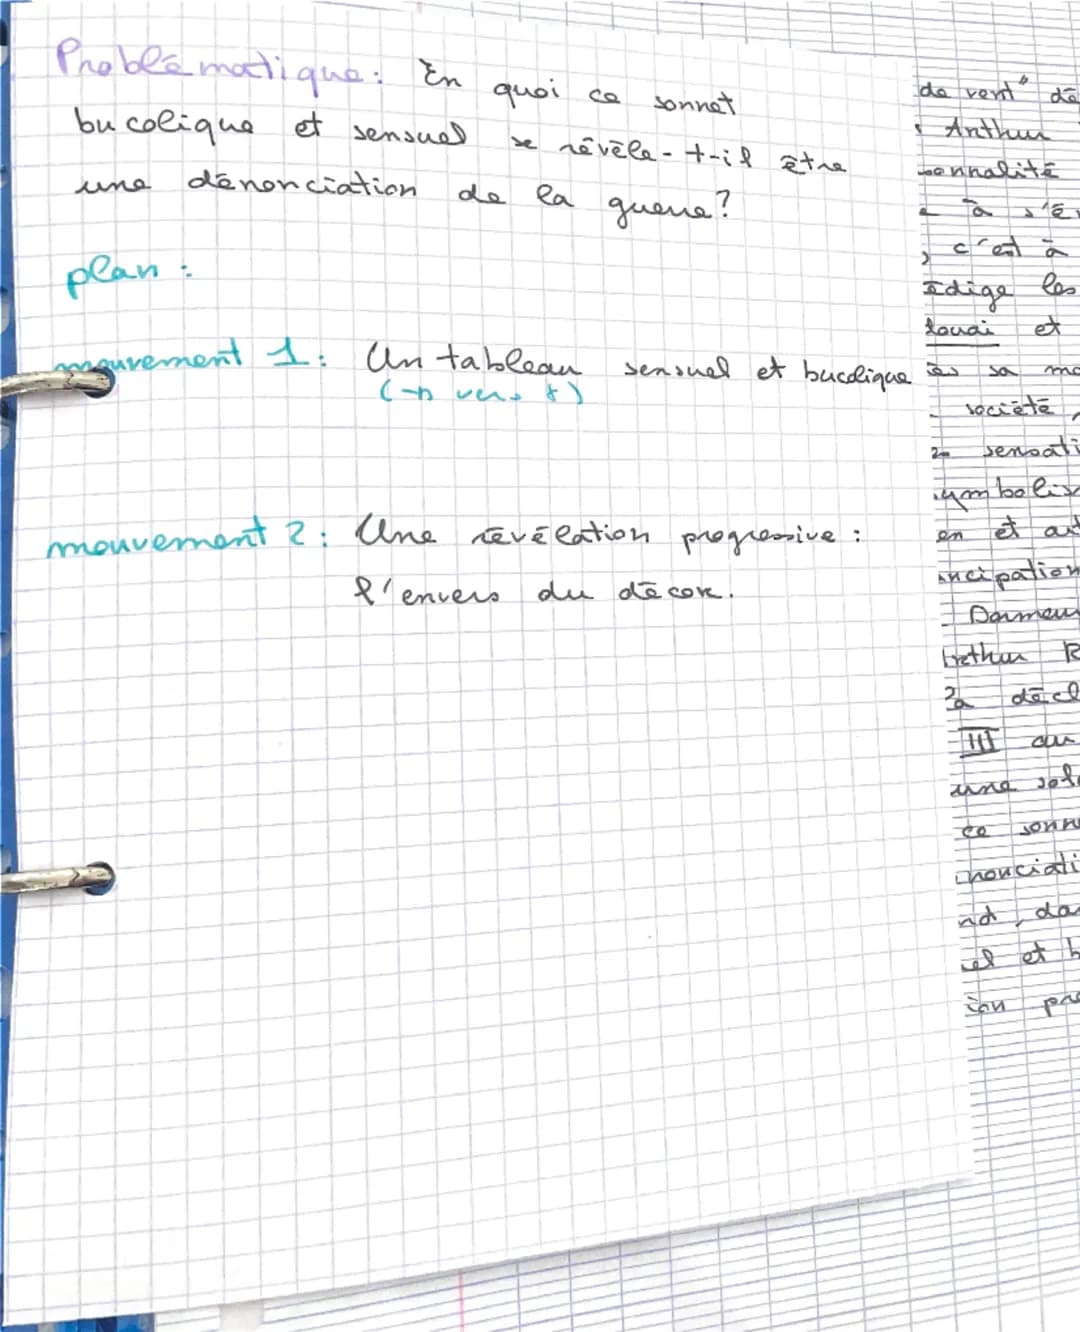 Problématique : En quoi ce sonnet
bucolique et sensuel se révèle-t-il être
une dénonciation de la guerre ?
plan :
mouvement 1 : Un tableau sensuel et bucolique
(→ vers 8)
mouvement 2 : Une révélation progressive :
l'envers du décor.
de vent" dé
Arthur
onnalité
à s'é
, c'est à
édige les
Douai et
sa mo
société,
sensati
symbolis
en et aut
ancipation
Dormeur
Arthur R
la décl
III au
une sol
ce sonn
nonciati
nd, da
el et b
ion pro